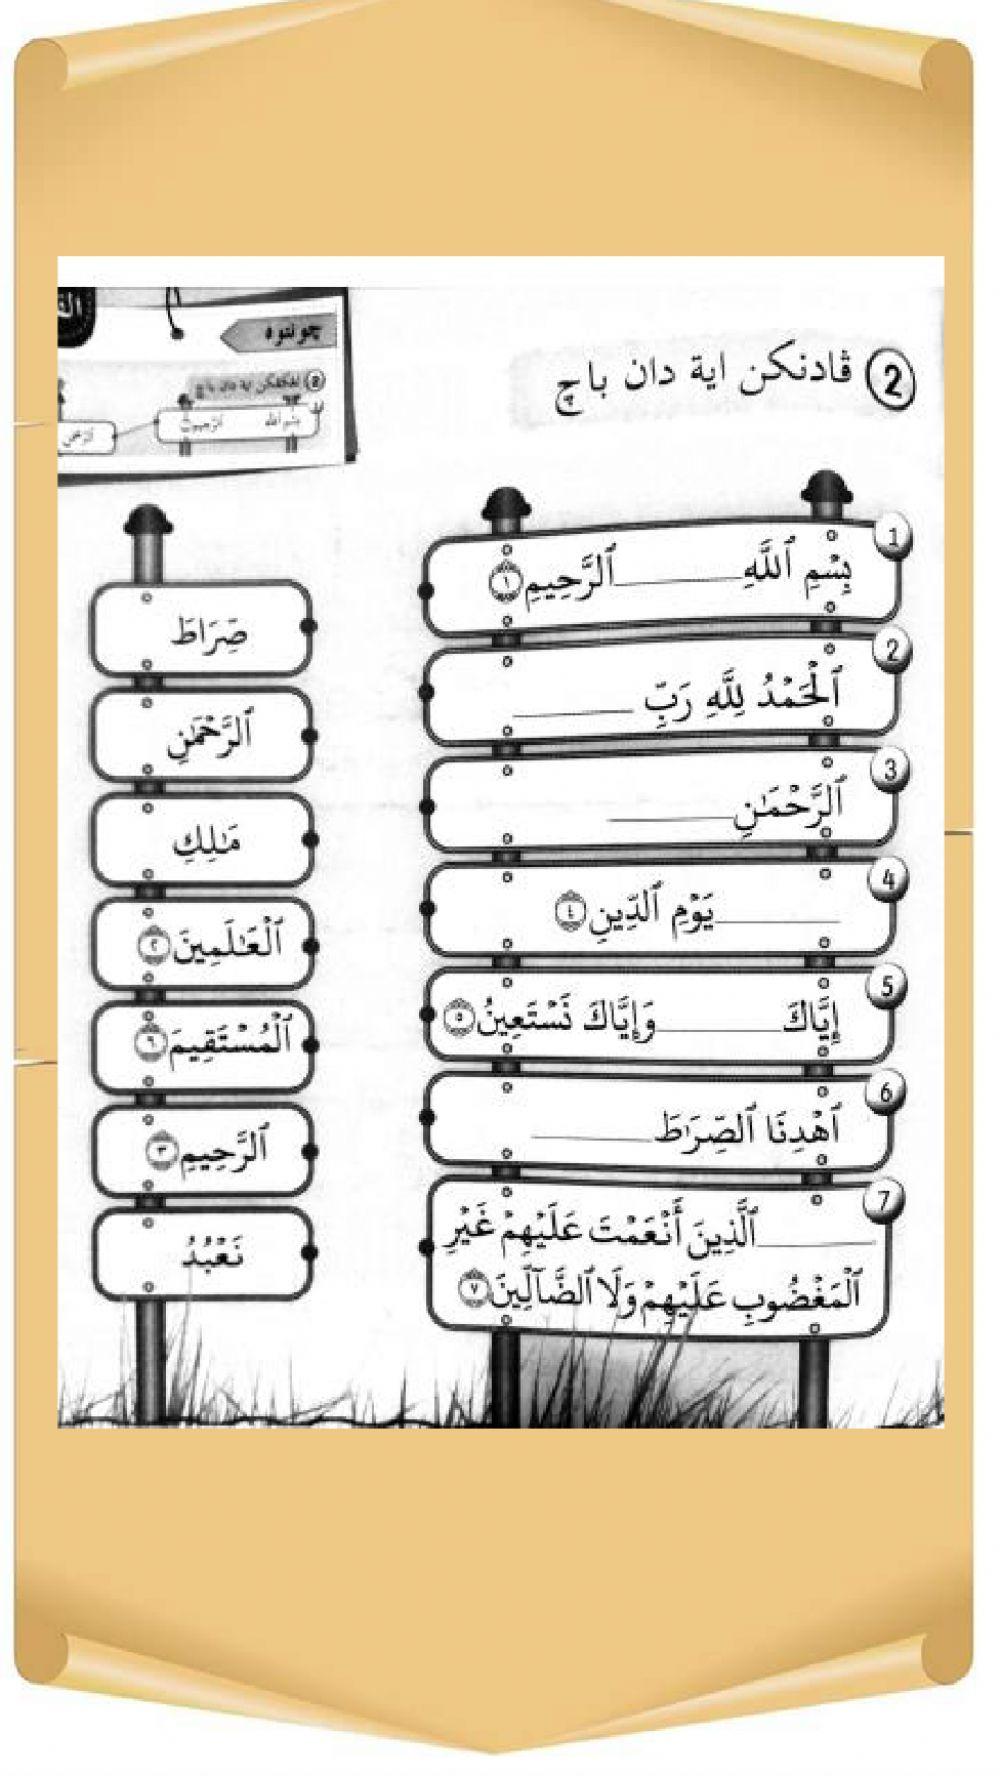 چونتوه
2 ڤادنكن اية دان باچ
1
بِسْمِ ٱللَّهِ ________ ٱلرَّحِيمِ ١
2
ٱلْحَمْدُ لِلَّهِ رَبِّ ________
3
ٱلرَّحْمَٰنِ ________
4
________ يَوْمِ ٱلدِّينِ ٤
5
إِيَّاكَ ________ وَإِيَّاكَ نَسْتَعِينُ ٥
6
ٱهْدِنَا ٱلصِّرَٰطَ ________
7
________ ٱلَّذِينَ أَنْعَمْتَ عَلَيْهِمْ غَيْرِ
ٱلْمَغْضُوبِ عَلَيْهِمْ وَلَا ٱلضَّآلِّينَ ٧
صِرَاطَ
ٱلرَّحْمَٰنِ
مَٰلِكِ
ٱلْعَٰلَمِينَ ٢
ٱلْمُسْتَقِيمَ ٦
ٱلرَّحِيمِ ٣
نَعْبُدُ